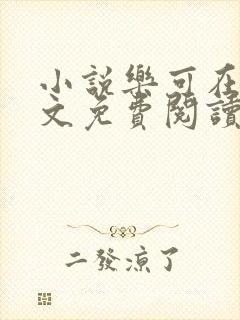 小說樂可在
文免費閱讀
二發涼了